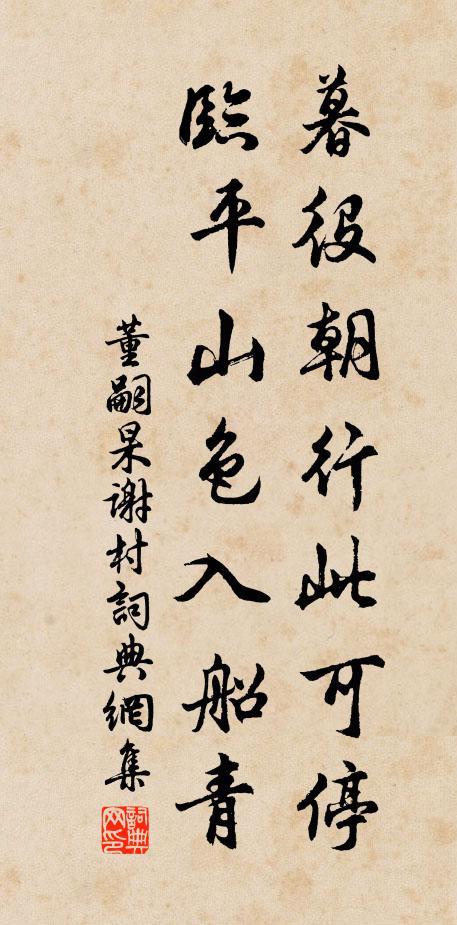 暮役朝行此可停
臨平山色入船青
董嗣杲謝村詞典網集
詞典网印